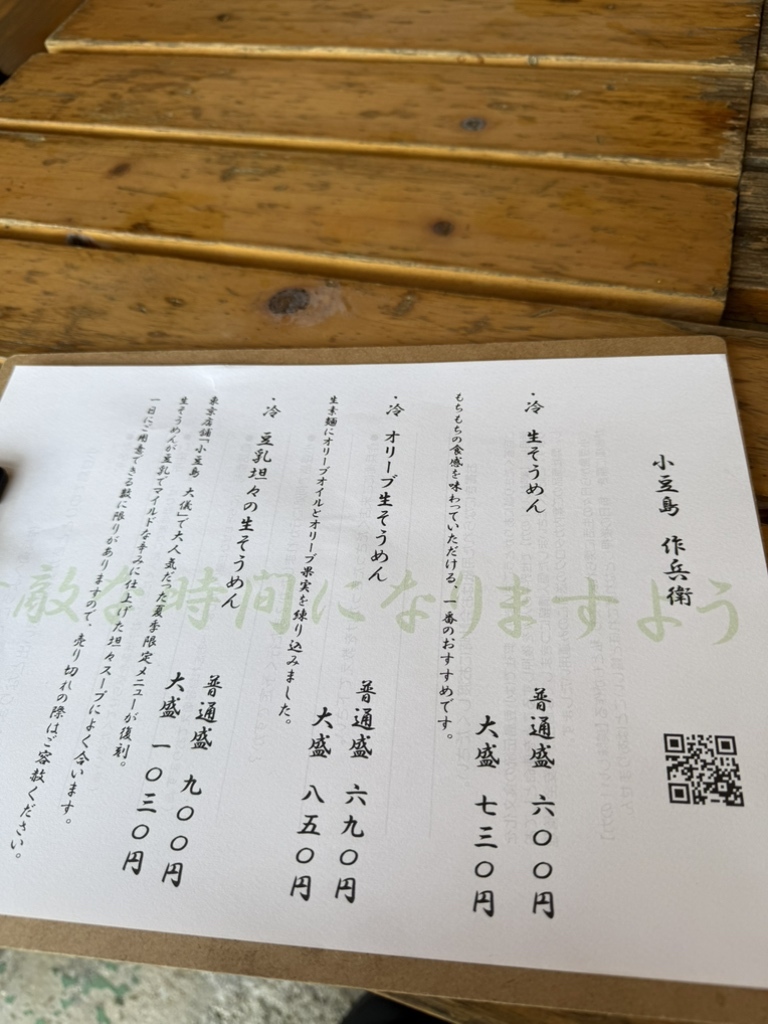 小豆島 作兵衛
・冷 生そうめん
普通盛 六〇〇円
大盛 七三〇円
もちもちの食感を味わっていただける、一番のおすすめです。
・冷 オリーブ生そうめん
普通盛 六九〇円
大盛 八五〇円
生素麺にオリーブオイルとオリーブ果実を練り込みました。
・冷 豆乳坦々の生そうめん
普通盛 九〇〇円
大盛 一〇三〇円
東京店舗「小豆島 大儀」で大人気だった夏季限定メニューが復刻。
生そうめんが豆乳でマイルドな辛みに仕上げた坦々スープによく合います。
一日にご用意できる数に限りがありますので、売り切れの際はご容赦ください。
敵な時間になりますよう